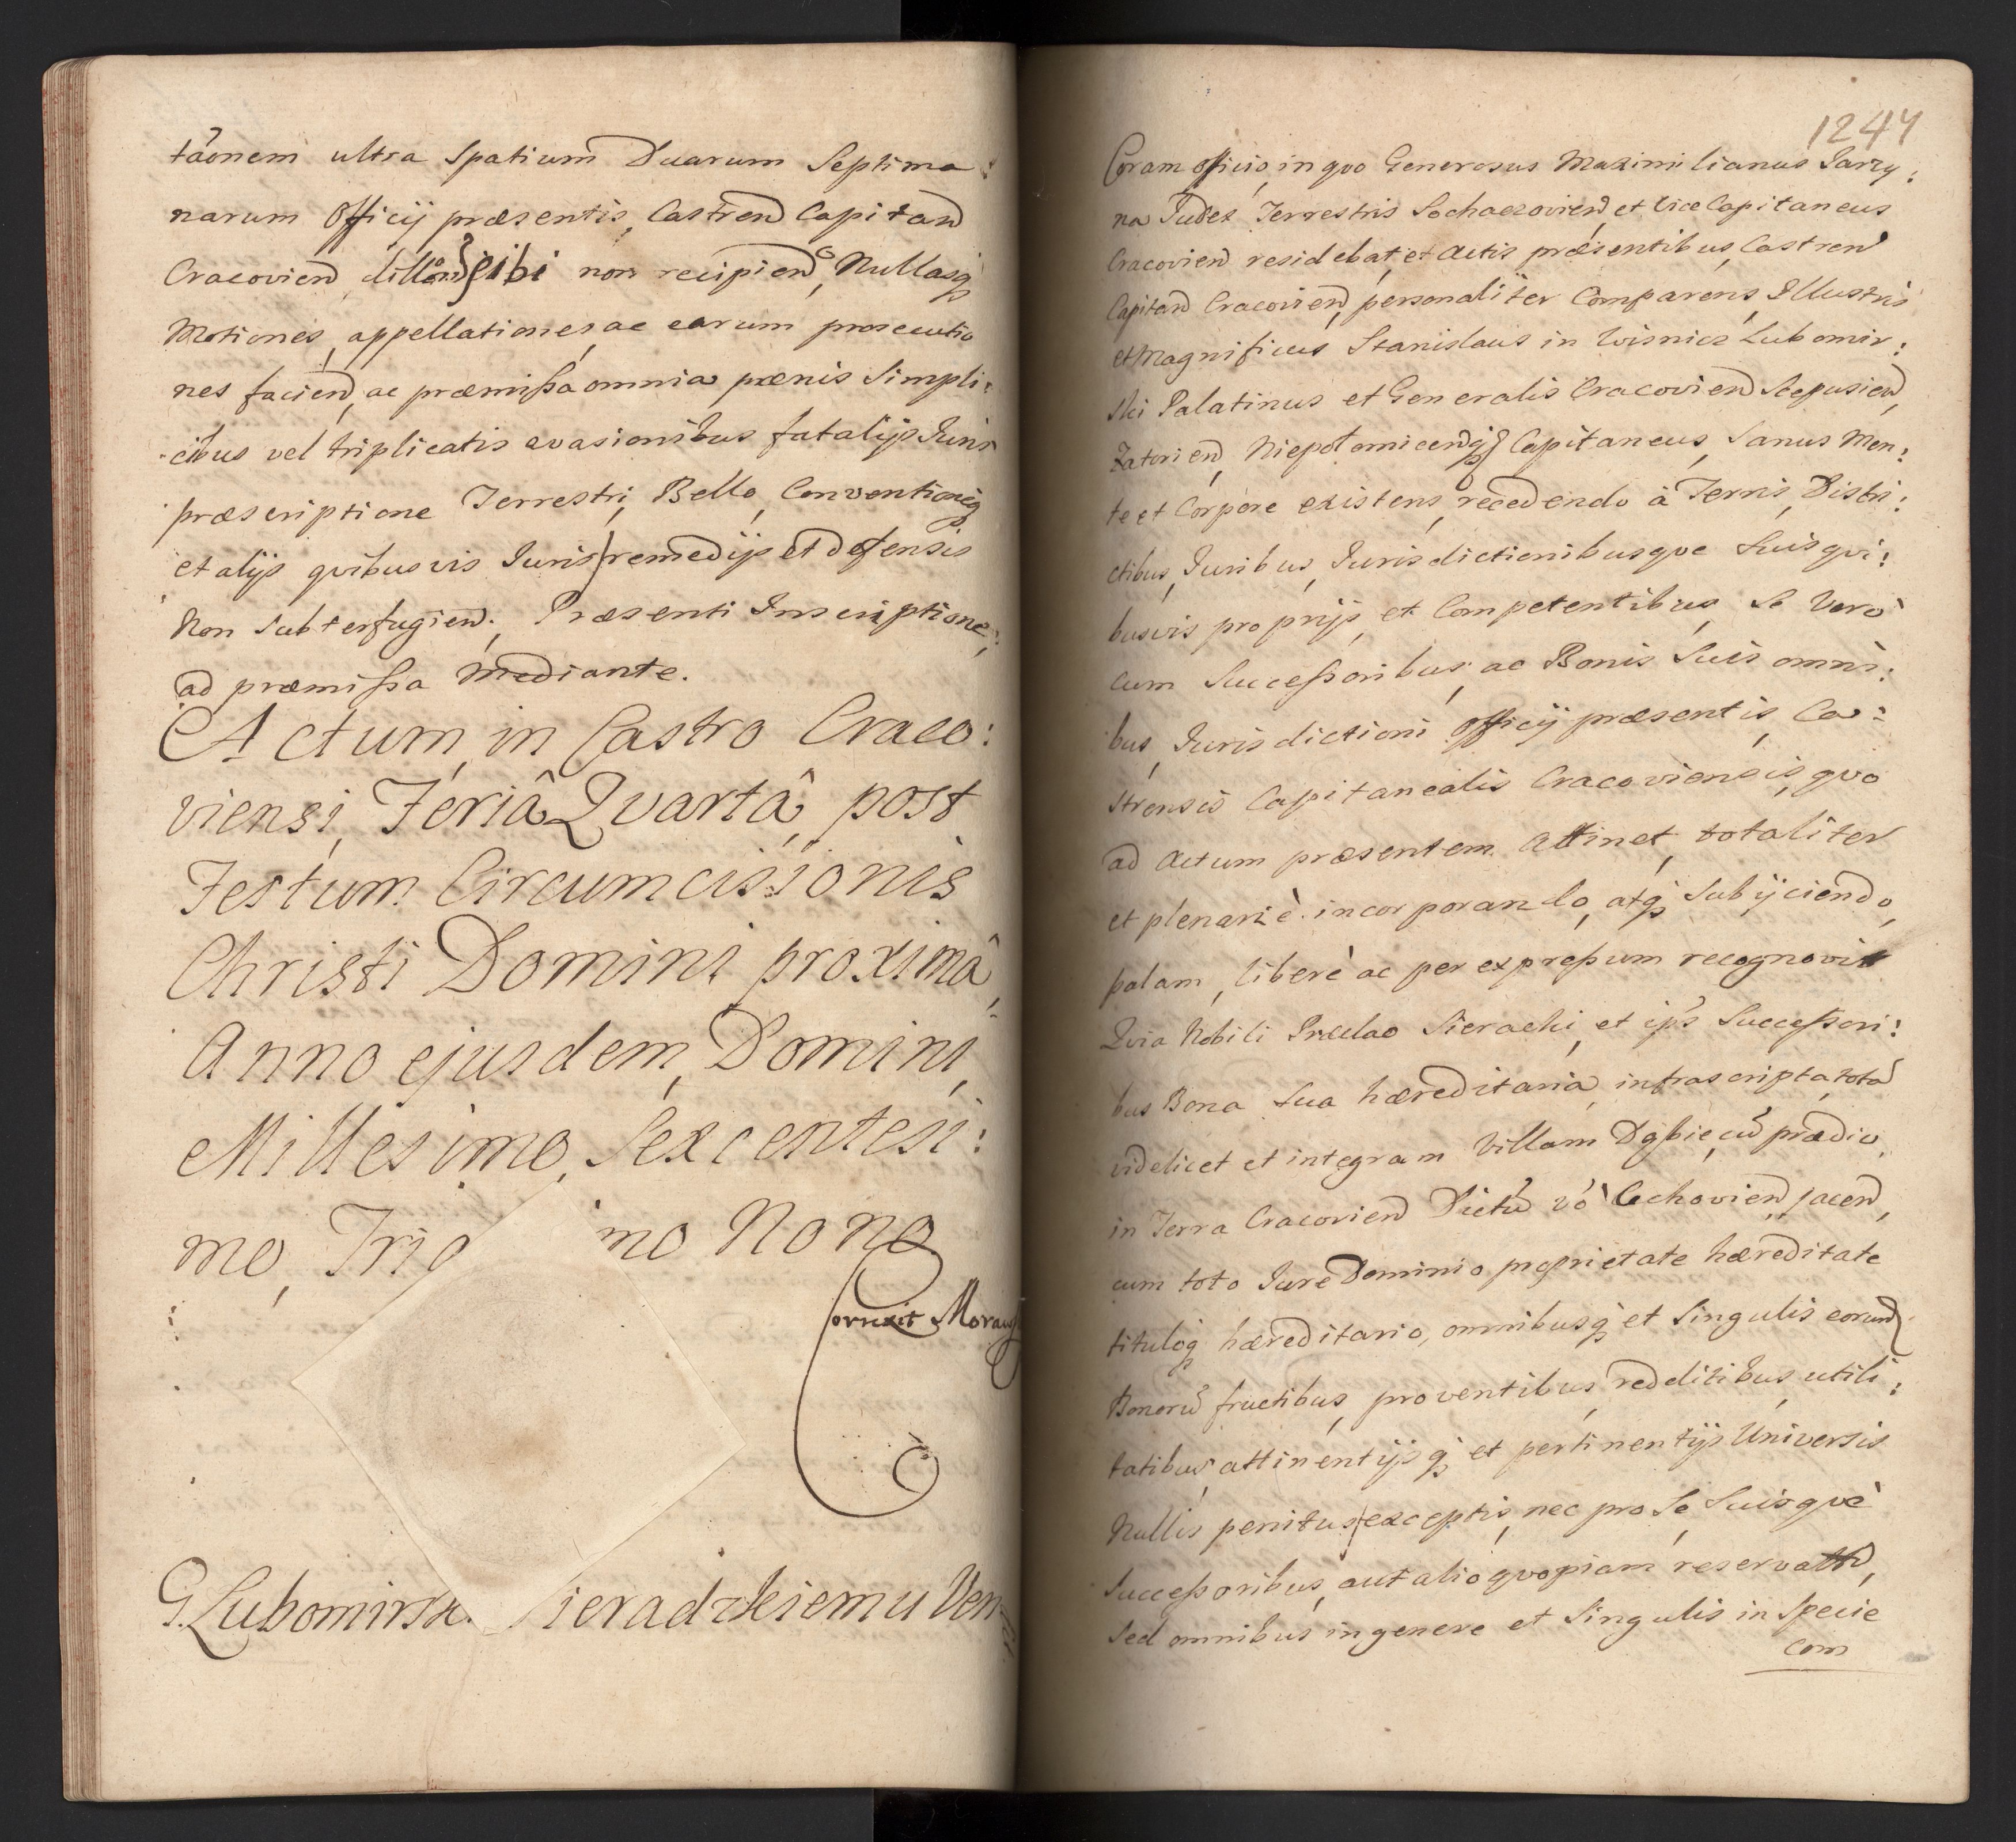 tãonem ultra Spatium Duarum Septima:
narum Officij præsentis, Castren Capitan
Cracovien, dillãon sibi non recipien, Nullasq
Motiones, appellationes, ac earum prosecutio
nes facien, ac præmißa omnia pœnis Simpli:
cibus vel triplicatis evasionibus fatalijs Juris
præscriptione Terrestri, Bello, Conventioneq
et alijs qvibusvis Juris remedijs et defensis
Non Subterfugien. Præsenti Inscriptione,
ad præmißa Mediante.
Actum in Castro Craco:
viensi, Feriâ Qvartâ, post
Festum Circumcisionis
Christi Domini proximâ,
Anno ejusdem, Domini,
Millesimo, Sexcentesi:
mo, Trig mo Nono
Correxit Moraws
G. Lubomirsk ieradzkiemu Ven
1247
Coram officio, in qvo Generosus Maximilianus Jarzy:
na Judex Terrestris Sochaczovien, et Vice Capitaneus
Cracovien residebat, et Actis præsentibus, Castren
Capitan Cracovien, personaliter Comparens, Illustris
et Magnificus Stanislaus in Wisnicz Lubomir:
ski Palatinus et Generalis Cracovien Scepusien,
Zatorien, Niepolomicenq Capitaneus, Sanus Men:
te et Corpore existens, recedendo à Terris, Distri:
ctibus, Juribus, Jurisdictionibusqve Suis qvi:
busvis proprijs, et Competentibus, Se Verò
cum Succeßoribus, ac Bonis Suis omni:
bus, Jurisdictioni Officij præsentis, Ca:
strensis Capitanealis Cracoviensis, qvo
ad Actum præsentem Attinet, totaliter
et plenariè incorporando, atq Subijciendo,
palam, liberè ac per expreßum recognovit
Qvia Nobili Preclao Sieracki, et ips Succeßori:
bus Bona Sua hæreditaria, infrascripta, tota
videlicet et integram Villam Dąbie, cũ prædio,
in Terra Cracovien Dictũ vò Cchovien, jacen,
cum toto Jure Dominio proprietate hæreditate
tituloq hæreditario, omnibusq et Singulis eorund
Bonorũ fructibus, proventibus, redditibus, utili:
tatibus, attinentijsq et pertinentijs Universis
Nullis penitus exceptis, nec pro Se, Suisqvè
Succeßoribus, aut alio qvopiam reservatis,
Sed omnibus in genere et Singulis in Specie
com